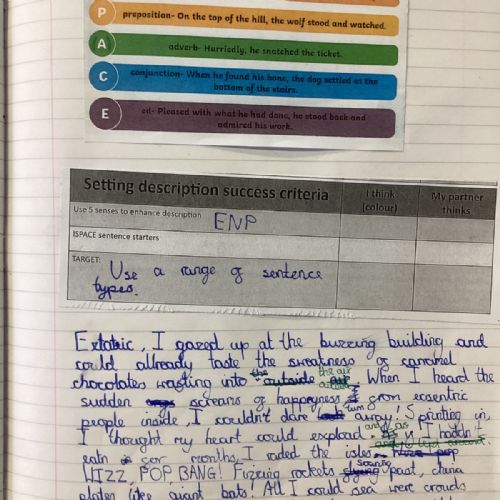 P preposition- On the top of the hill, the wolf stood and watched.
A adverb- Hurriedly, he snatched the ticket.
C conjunction- When he found his bone, the dog settled at the
bottom of the stairs.
E ed- Pleased with what he had done, he stood back and
admired his work.
Setting description success criteria I think (colour) My partner thinks
Use 5 senses to enhance description ENP
ISPACE sentence starters
TARGET: Use a range of sentence
types.
I gazed up at the buzzing building and
could allready taste the sweatness of caramel
chocolates wasting into the outside the air When I heard the
sudden screams of happyness from
people inside, I couldn't dare turn away! Sprinting in,
I thought my heart could expload. As if I hadn't
months, I raded the isles.
WIZZ, POP BANG! Fizzing rockets past, china
plates like giant bats! All I could see were crowds